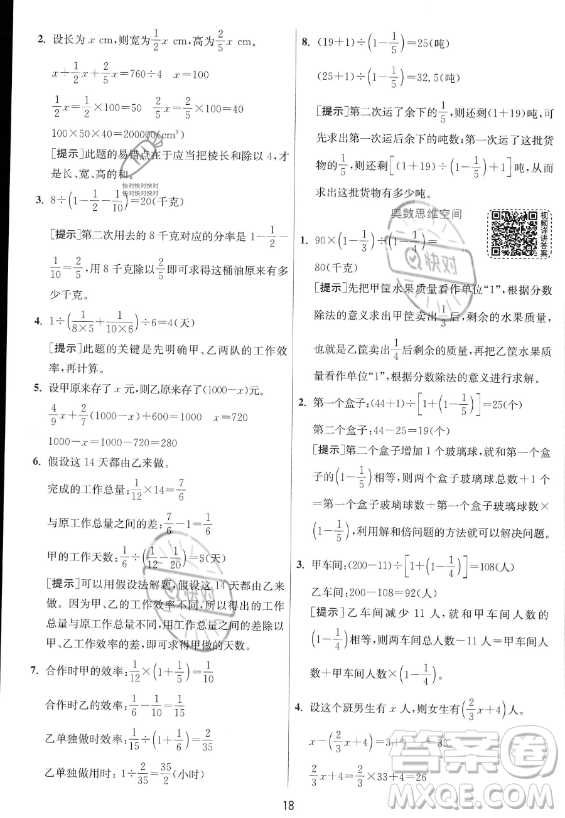 2. 设长为 x cm,则宽为 1/2 x cm,高为 2/5 x cm。
x+1/2x+2/5x=760÷4 x=100
1/2x=1/2×100=50 2/5x=2/5×100=40
100×50×40=200000(cm³)
[提示]此题的易错点在于应当把棱长和除以 4,才
是长、宽、高的和。
快对快对快对
快对快对快对
3. 8÷(1-1/2-1/10)=20(千克)
[提示]第二次用去的 8 千克对应的分率是 1-1/2-
1/10,用 8 千克除以(1-1/2-1/10)即可求得这桶油原来有多
少千克。
4. 1÷(1/(8×5)+1/(10×6))÷6=4(天)
[提示]此题的关键是先明确甲、乙两队的工作效
率,再计算。
5. 设甲原来存了 x 元,则乙原来存了(1000-x)元。
4/9x+2/7(1000-x)+600=1000 x=720
1000-x=1000-720=280
6. 假设这 14 天都由乙来做。
完成的工作总量:1/12×14=7/6
与原工作总量之间的差:7/6-1=1/6
甲的工作天数:1/6÷(1/12-1/20)=5(天)
[提示]可以用假设法解题,假设这 14 天都由乙来
做。因为甲、乙的工作效率不同,所以完成的工作总
量与原工作总量不同,用工作总量之间的差除以
甲、乙工作效率的差即可求得甲做的天数。
7. 合作时甲的效率:1/12×(1+1/5)=1/10
合作时乙的效率:1/6-1/10=1/15
乙单独做时效率:1/15÷(1+1/6)=2/35
乙单独做用时:1÷2/35=35/2(小时)
8. (19+1)÷(1-1/5)=25(吨)
(25+1)÷(1-1/5)=32.5(吨)
[提示]第二次运了余下的1/5,则还剩(1+19)吨,可
先求出第一次运后余下的吨数;第一次运了这批货
物的1/5,则还剩[(1+19)÷(1-1/5)+1]吨,从而
求出这批货物有多少吨。
奥数思维空间
视频详解答案
1. 90×(1-1/4)÷(1-1/3)=
80(千克)
快对
[提示]先把甲筐水果质量看作单位“1”,根据分数
除法的意义求出甲筐卖出1/3后,剩余的水果质量
也就是乙筐卖出1/4后剩余的质量,再把乙筐水果质
量看作单位“1”,根据分数除法的意义进行求解。
2. 第一个盒子:(44+1)÷[1+(1-1/5)]=25(个)
第二个盒子:44-25=19(个)
[提示]第二个盒子增加 1 个玻璃球,就和第一个盒
子的(1-1/5)相等,则两个盒子玻璃球总数+1 个
=第一个盒子玻璃球数+第一个盒子玻璃球数×
(1-1/5),利用解和倍问题的方法就可以解决问题。
3. 甲车间:(200-11)÷[1+(1-1/4)]=108(人)
乙车间:200-108=92(人)
[提示]乙车间减少 11 人,就和甲车间人数的
(1-1/4)相等,则两车间总人数-11 人=甲车间人
数+甲车间人数×(1-1/4)。
4. 设这个班男生有 x 人,则女生有(2/3x+4)人。
2/3x+4=2/3×33+4=26
18
答案圈
MXQE.COM